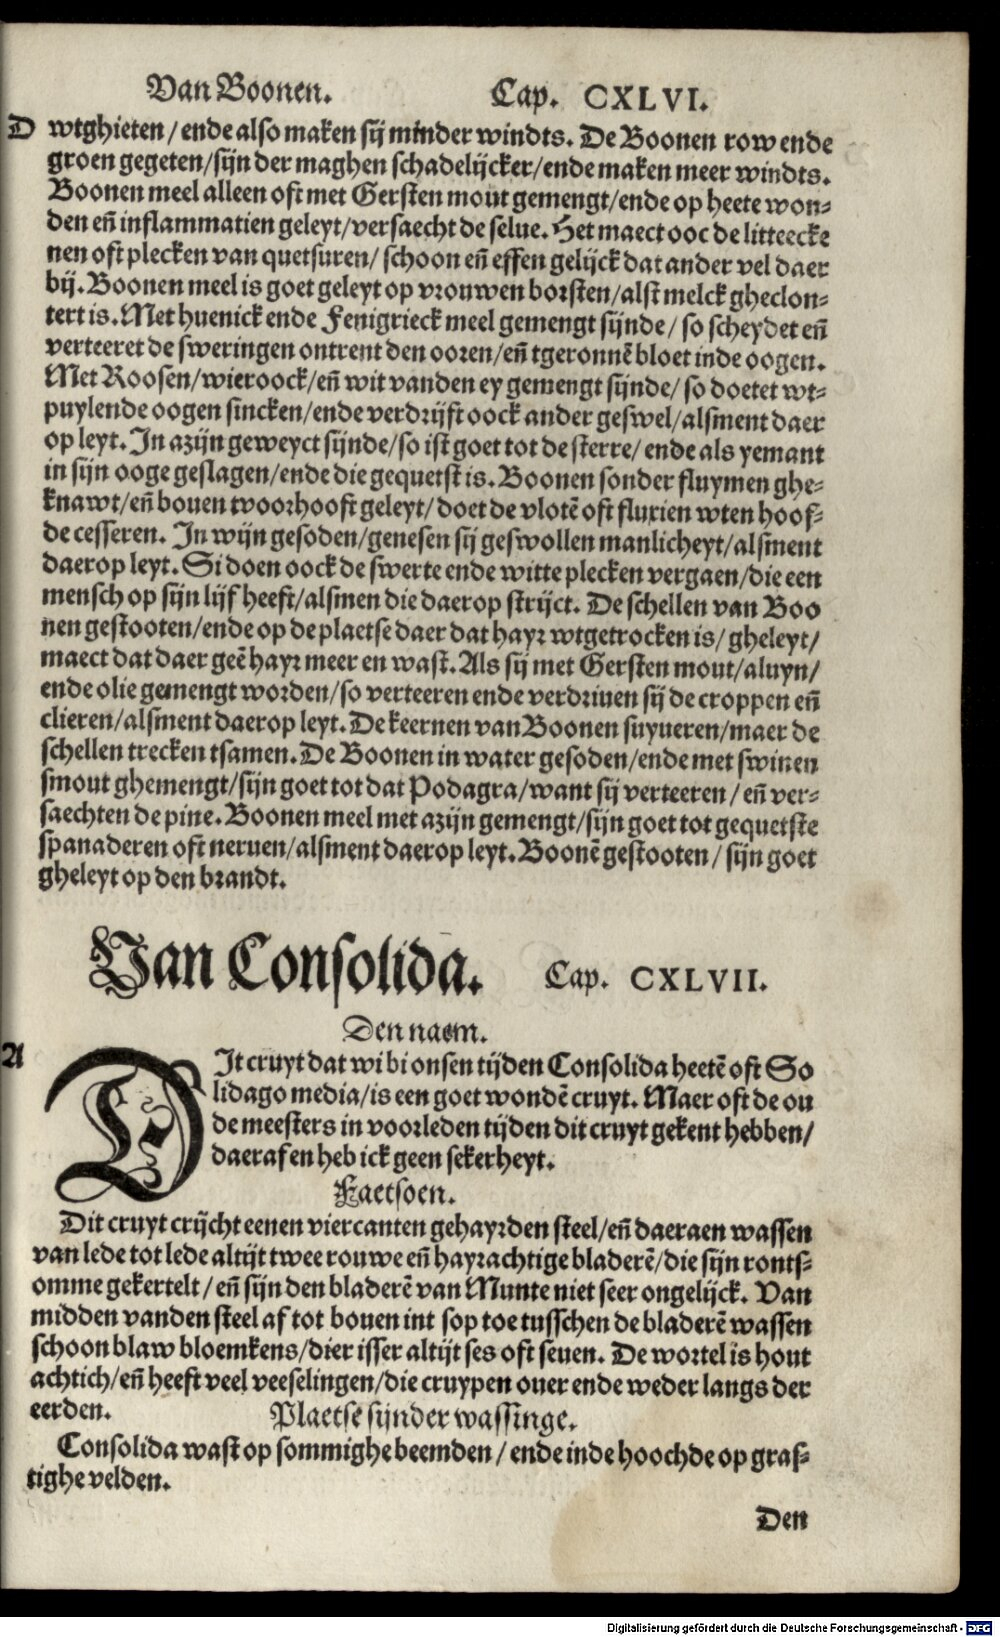 Van Boonen. Cap. CXLVI.
D wtghieten/ende also maken sij minder windts. De Boonen row ende
groen gegeten/sijn der maghen schadelijcker/ende maken meer windts.
Boonen meel alleen oft met Gersten mout gemengt/ende op heete won-
den en̄ inflammatien geleyt/versaecht de selue. Het maect ooc de litteecke
nen oft plecken van quetsuren/ schoon en̄ effen gelijck dat ander vel daer
bij. Boonen meel is goet geleyt op vrouwen borsten/alst melck gheclon-
tert is. Met huenick ende Fenigrieck meel gemengt sijnde/ so scheydet en̄
verteeret de sweringen ontrent den ooren/en̄ tgeronnē bloet inde oogen.
Met Roosen/wieroock/en̄ wit vanden ey gemengt sijnde/ so doetet wt-
puylende oogen sincken/ende verdrijft oock ander geswel/alsment daer
op leyt. In azijn geweyct sijnde/so ist goet tot de sterre/ ende als yemant
in sijn ooge geslagen/ende die gequetst is. Boonen sonder fluymen ghe-
knawt/en̄ bouen tvoorhooft geleyt/ doet de vlotē oft fluxien wten hoof-
de cesseren. In wijn gesoden/genesen sij geswollen manlicheyt/alsment
daerop leyt. Si doen oock de swerte ende witte plecken vergaen/die een
mensch op sijn lijf heeft/alsmen die daerop strijct. De schellen van Boo
nen gestooten/ende op de plaetse daer dat hayr wtgetrocken is/ gheleyt/
maect dat daer geē hayr meer en wast. Als sij met Gersten mout/aluyn/
ende olie gemengt worden/so verteeren ende verdriuen sij de croppen en̄
clieren/alsment daerop leyt. De keernen van Boonen suyueren/maer de
schellen trecken tsamen. De Boonen in water gesoden/ende met swinen
smout ghemengt/sijn goet tot dat Podagra/want sij verteeren/ en̄ ver-
saechten de pine. Boonen meel met azijn gemengt/sijn goet tot gequetste
spanaderen oft neruen/alsment daerop leyt. Boonē gestooten/ sijn goet
gheleyt op den brandt.
Van Consolida. Cap. CXLVII.
Den naem.
A DIt cruyt dat wi bi onsen tijden Consolida heetē oft So
lidago media/is een goet wondē cruyt. Maer oft de ou
de meesters in voorleden tijden dit cruyt gekent hebben/
daeraf en heb ick geen sekerheyt.
Faetsoen.
Dit cruyt crijcht eenen viercanten gehayrden steel/en̄ daeraen wassen
van lede tot lede altijt twee rouwe en̄ hayrachtige bladerē/die sijn ronts-
omme gekertelt/ en̄ sijn den bladerē van Munte niet seer ongelijck. Van
midden vanden steel af tot bouen int sop toe tusschen de bladerē wassen
schoon blaw bloemkens/dier isser altijt ses oft seuen. De wortel is hout
achtich/en̄ heeft veel veeselingen/die cruypen ouer ende weder langs der
eerden. Plaetse sijnder wassinge.
Consolida wast op sommighe beemden/ ende inde hoochde op gras-
tighe velden.
Den
Digitalisierung gefördert durch die Deutsche Forschungsgemeinschaft - DFG